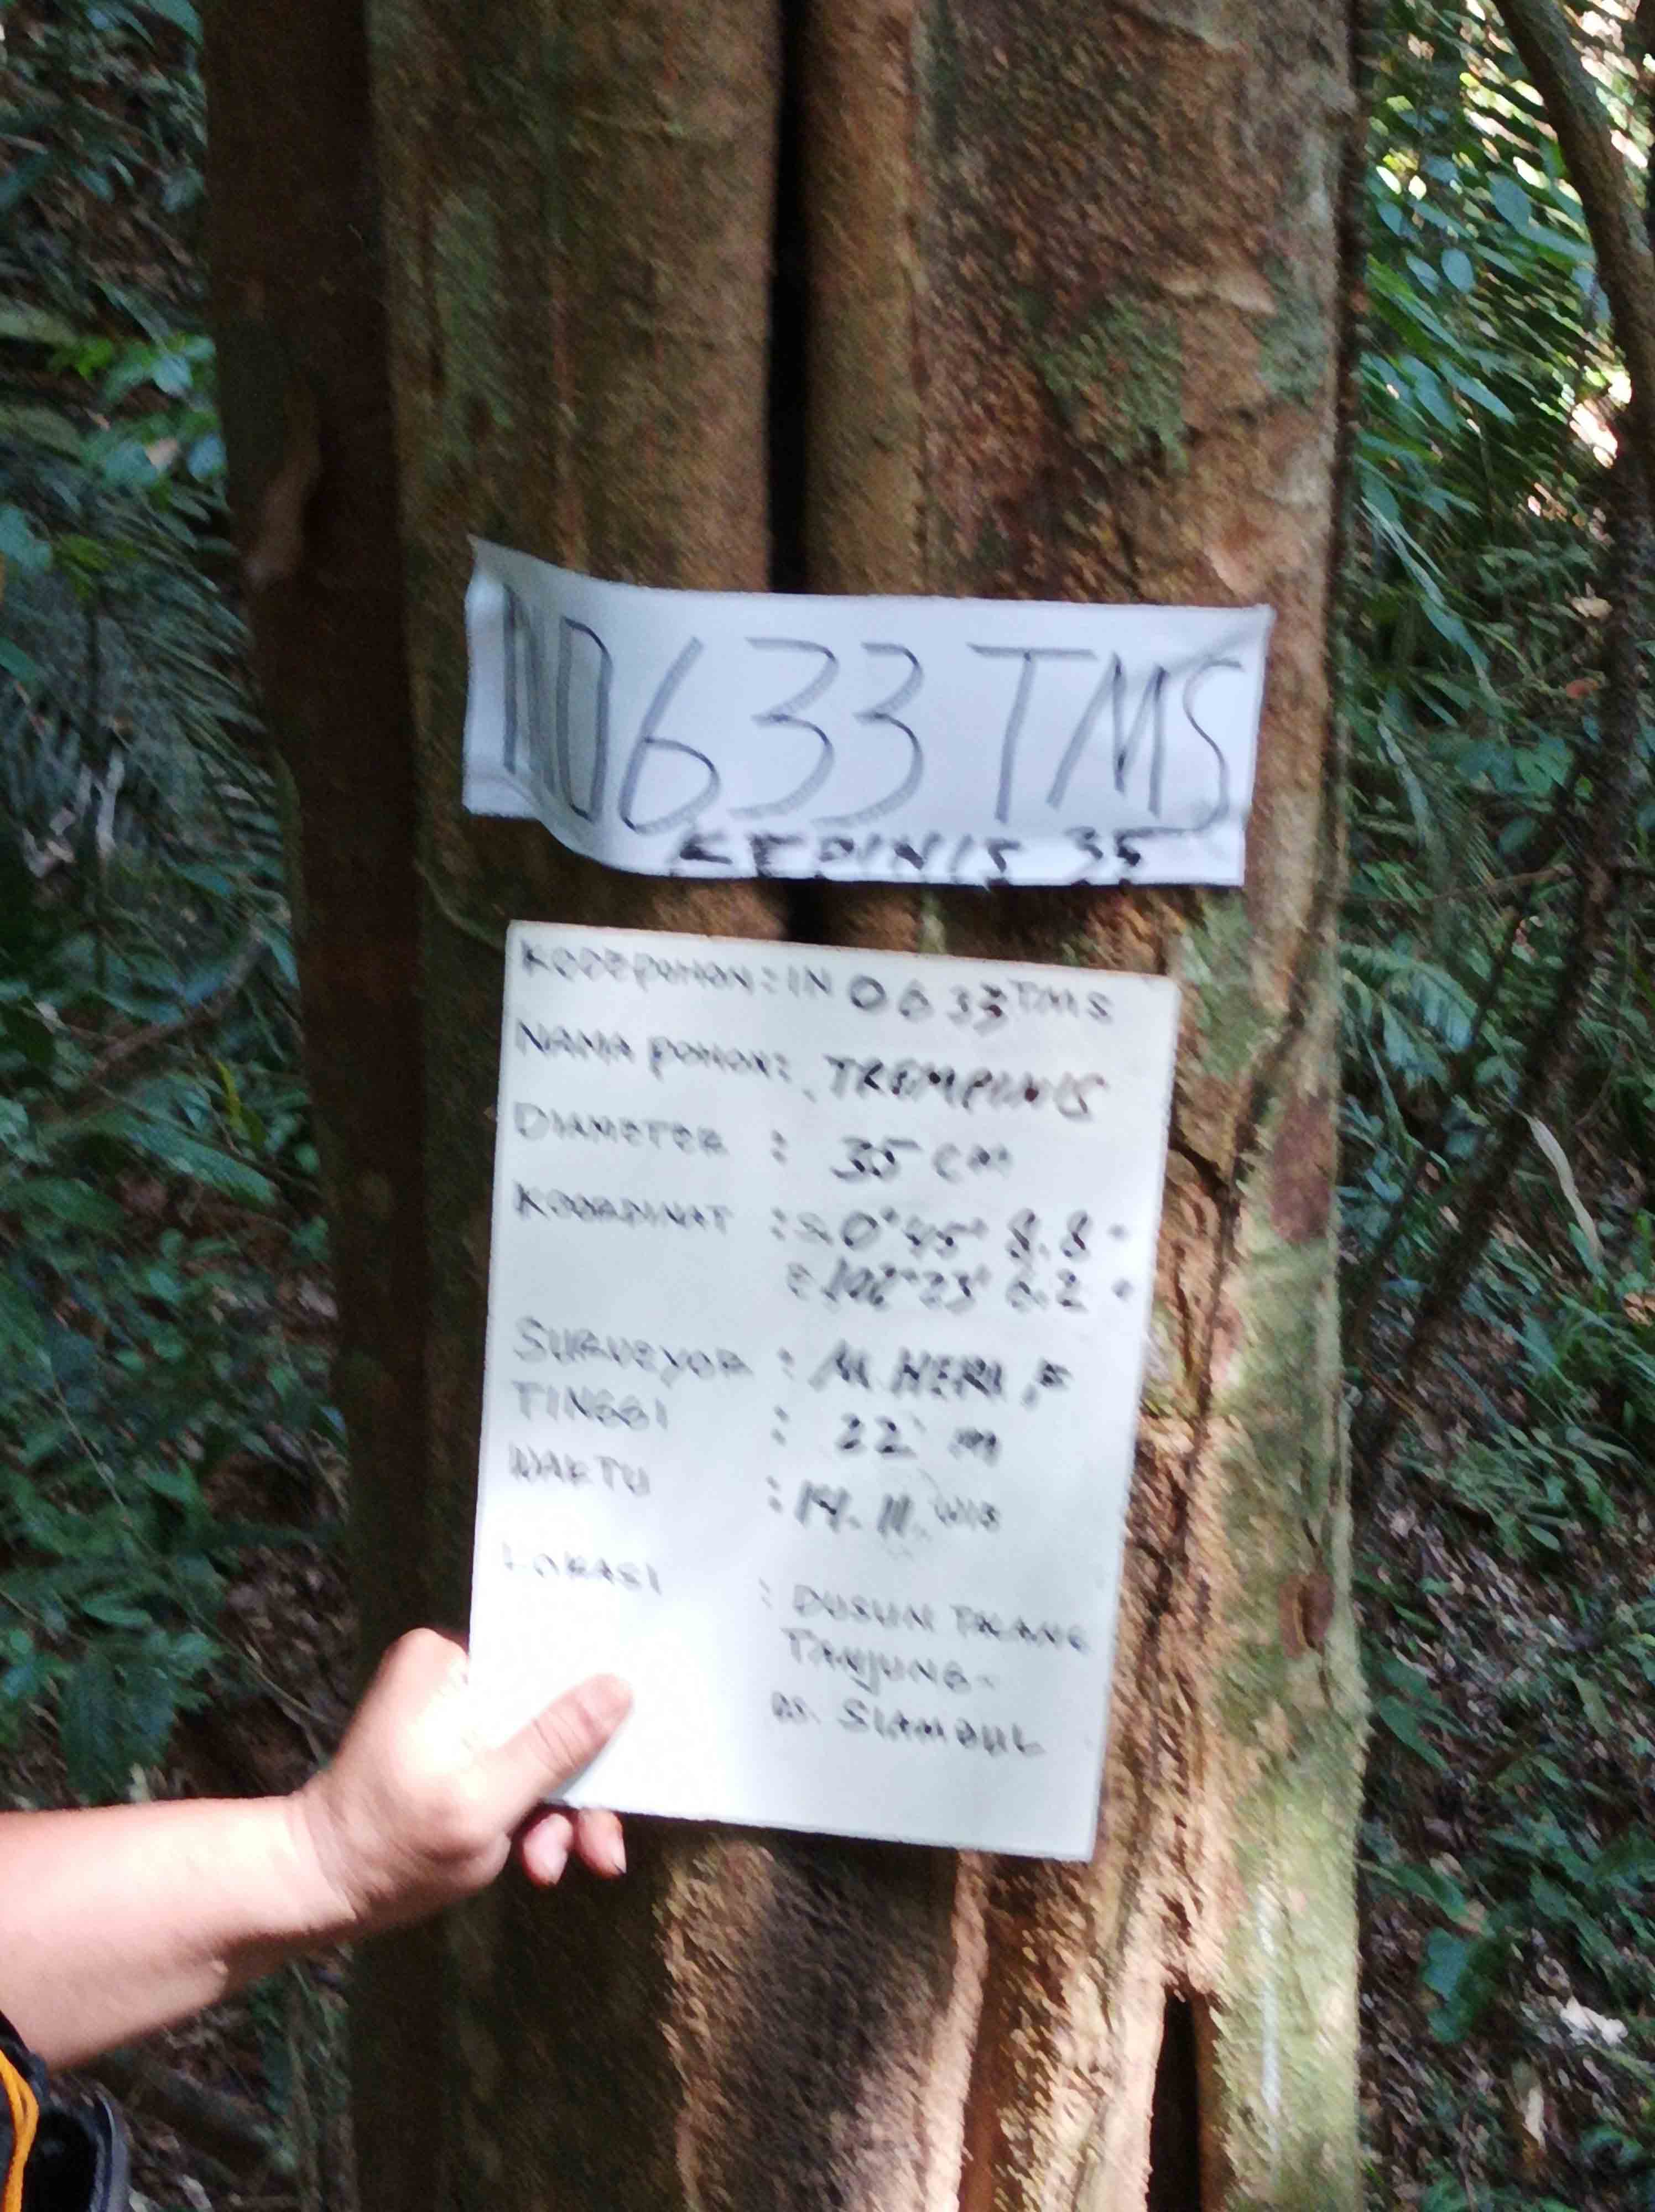 IN0633 TMS
KEPINIS 35
KODE POHON : IN 0633 TMS
NAMA POHON : TREMPINIS
DIAMETER : 35 cm
KOORDINAT : S. 0° 45' 8.8"
E 102° 23' 6.2"
SURVEYOR : M. HERI, F
TINGGI : 22 m
WAKTU : 14.11. WIB
LOKASI : DUSUN
TANJUNG-
DS. SIAMBUL